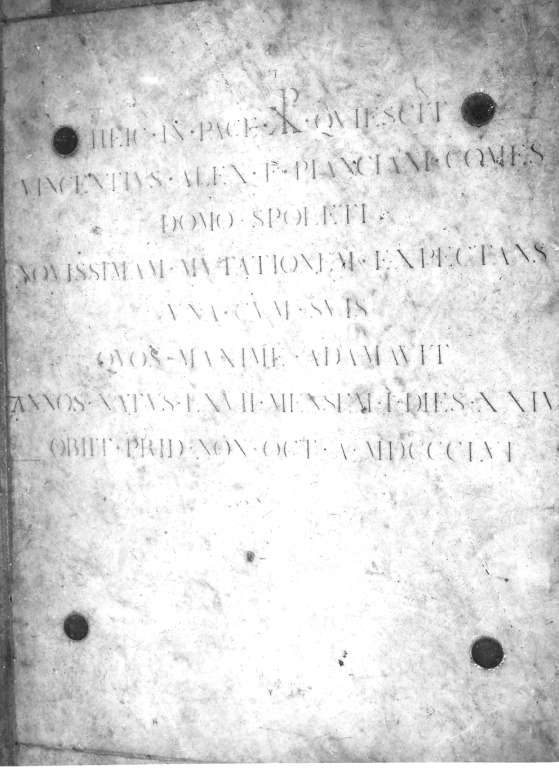 HEIC · IN · PACE · ☧ · QVIESCIT
VINCENTIVS · ALEX · F · PIANCIANI · COMES
DOMO · SPOLETI
NOVISSIMAM · MVTATIONEM · EXPECTANS
VNA · CVM · SVIS
QVOS · MAXIME · ADAMAVIT
ANNOS · NATVS · LXVII · MENSEM · I · DIES · XXIV
OBIIT · PRID · NON · OCT · A · MDCCCLVI